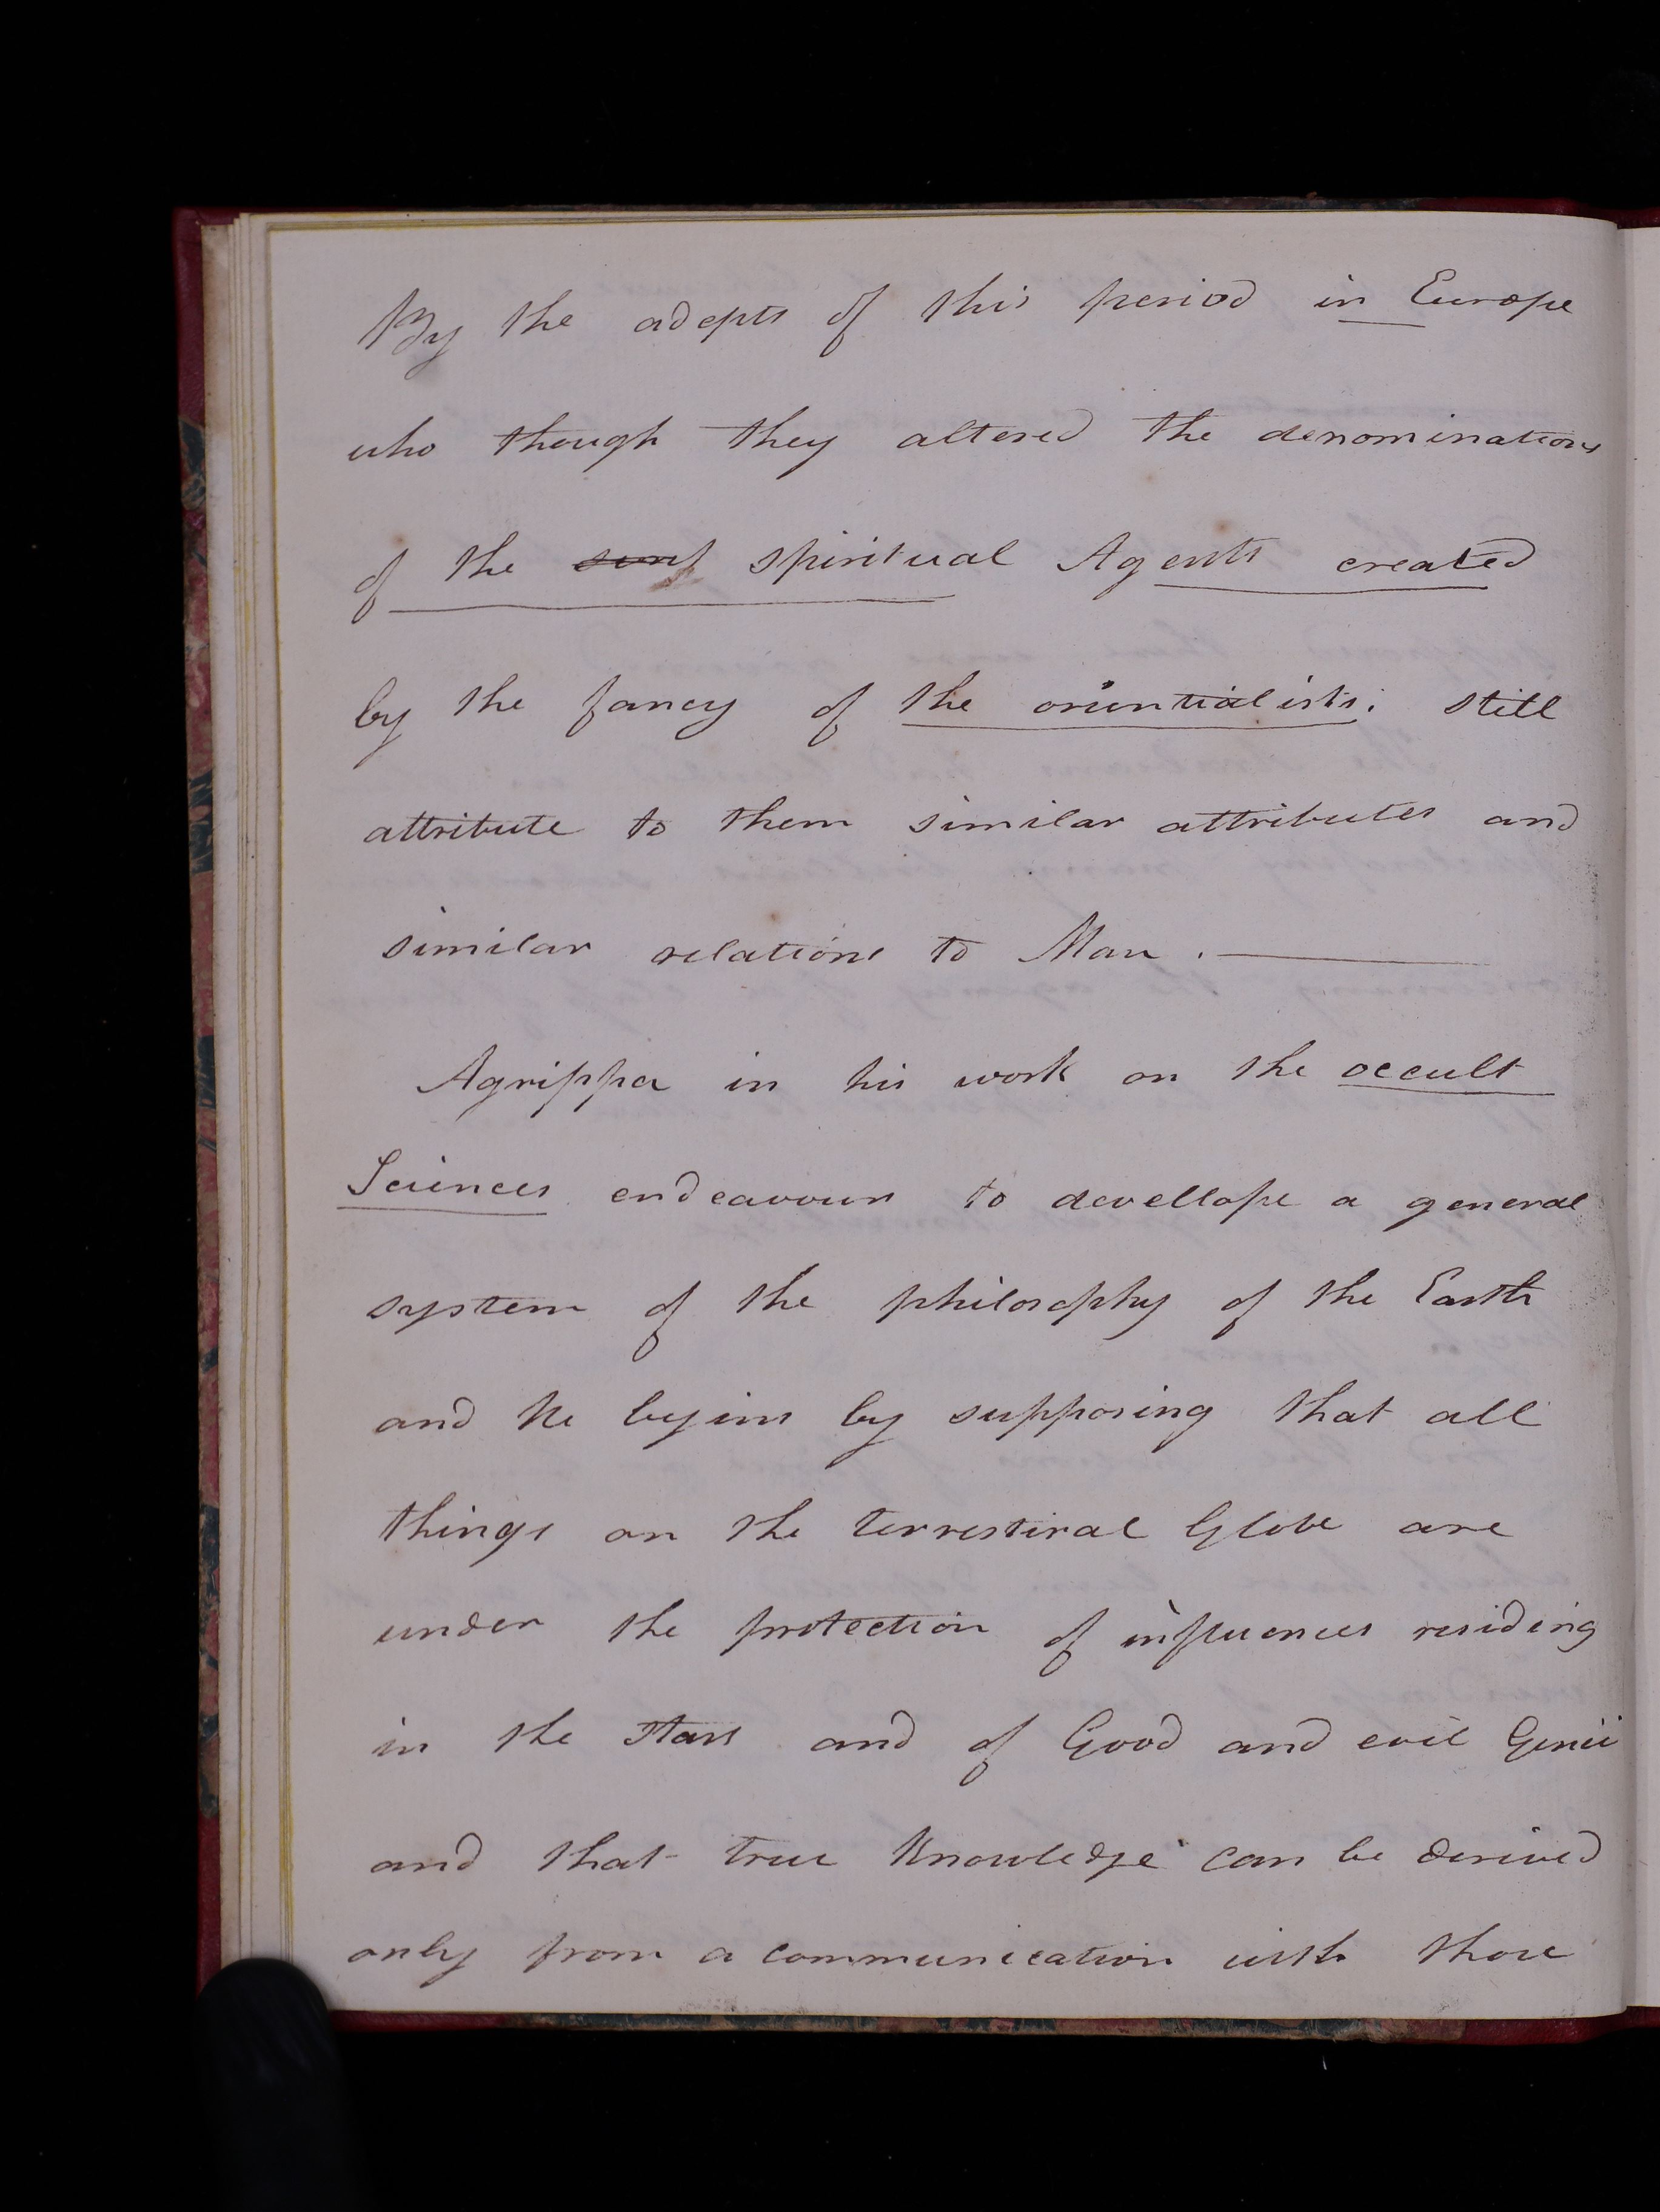 By the adepts of this period in Europe
who though they altered the denominations
of the spiritual Agents created
by the fancy of the orientialists; still
attribute to them similar attributes and
similar relations to Man.
Agrippa in his work on the occult
Sciences endeavours to devellope a general
system of the philosophy of the Earth
and he begins by supposing that all
things on the terrestiral Globe are
under the protection of influences residing
in the stars and of Good and evil Genii
and that true Knowledge can be derived
only from a communication with those